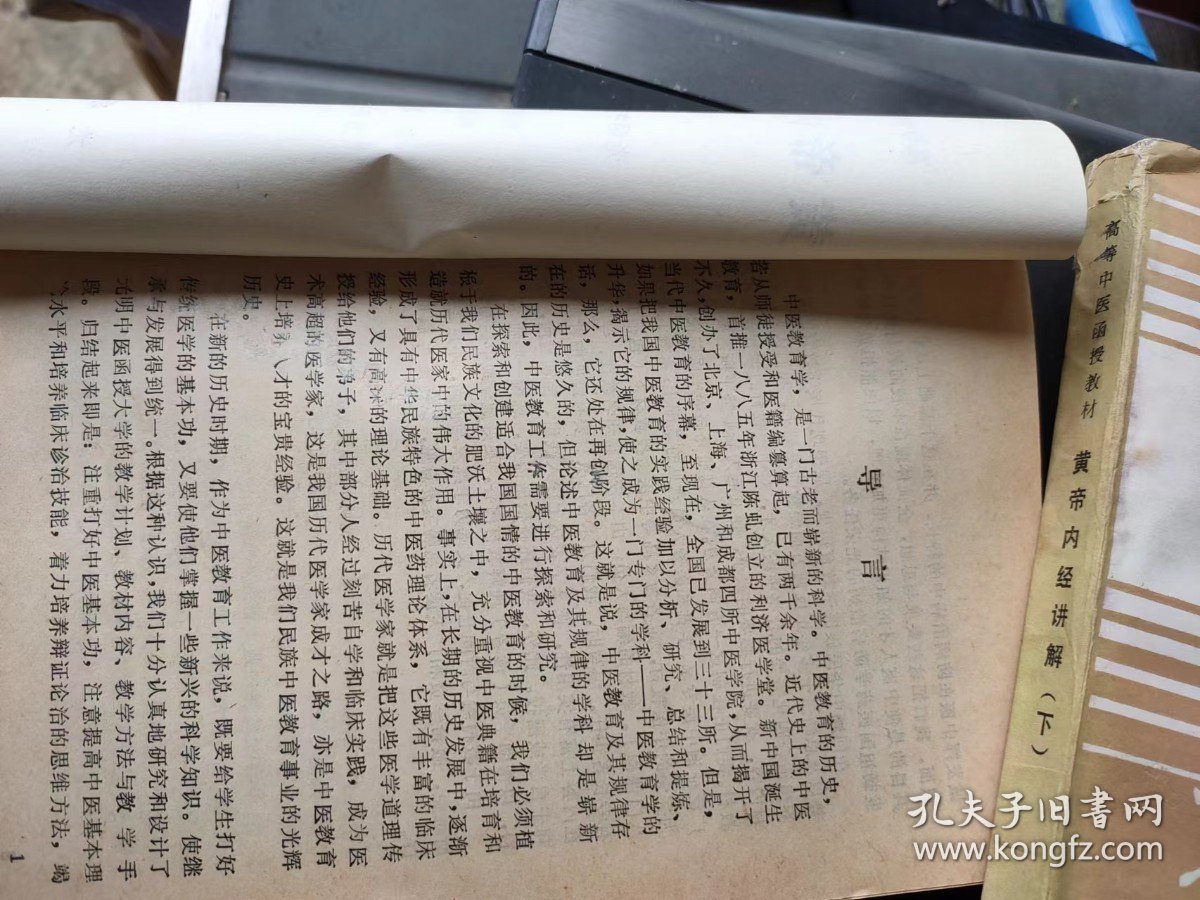 导言
中医教育学，是一门古老而崭新的科学。中医教育的历史，
若从师徒授受和医籍编纂算起，已有两千余年。近代史上的中医
教育，首推一八八五年浙江陈虬创立的利济医学堂。新中国诞生
不久，创办了北京、上海、广州和成都四所中医学院，从而揭开了
当代中医教育的序幕，至现在，全国已发展到三十三所。但是，
如果把我国中医教育的实践经验加以分析、研究、总结和提炼、
升华，揭示它的规律，使之成为一门专门的学科——中医教育学的
话，那么，它还处在再创阶段。这就是说，中医教育及其规律存
在的历史是悠久的，但论述中医教育及其规律的学科却是崭新
的。因此，中医教育工作需要进行探索和研究。
在探索和创建适合我国国情的中医教育的时候，我们必须植
根于我们民族文化的肥沃土壤之中，充分重视中医典籍在培育和
造就历代医家中的伟大作用。事实上，在长期的历史发展中，逐渐
形成了具有中华民族特色的中医药理论体系，它既有丰富的临床
经验，又有高深的理论基础。历代医学家就是把这些医学道理传
授给他们的弟子，其中部分人经过刻苦自学和临床实践，成为医
术高超的医学家，这是我国历代医学家成才之路，亦是中医教育
史上培养人才的宝贵经验。这就是我们民族中医教育事业的光辉
历史。
在新的历史时期，作为中医教育工作来说，既要给学生打好
传统医学的基本功，又要使他们掌握一些新兴的科学知识。使继
承与发展得到统一。根据这种认识，我们十分认真地研究和设计了
光明中医函授大学的教学计划、教材内容、教学方法与教学手
段。归结起来即是：注重打好中医基本功，注意提高中医基本理
水平和培养临床诊治技能，着力培养辩证论治的思维方法，竭
1
高等中医函授教材 黄帝内经讲解（下）
孔夫子旧书网
www.kongfz.com